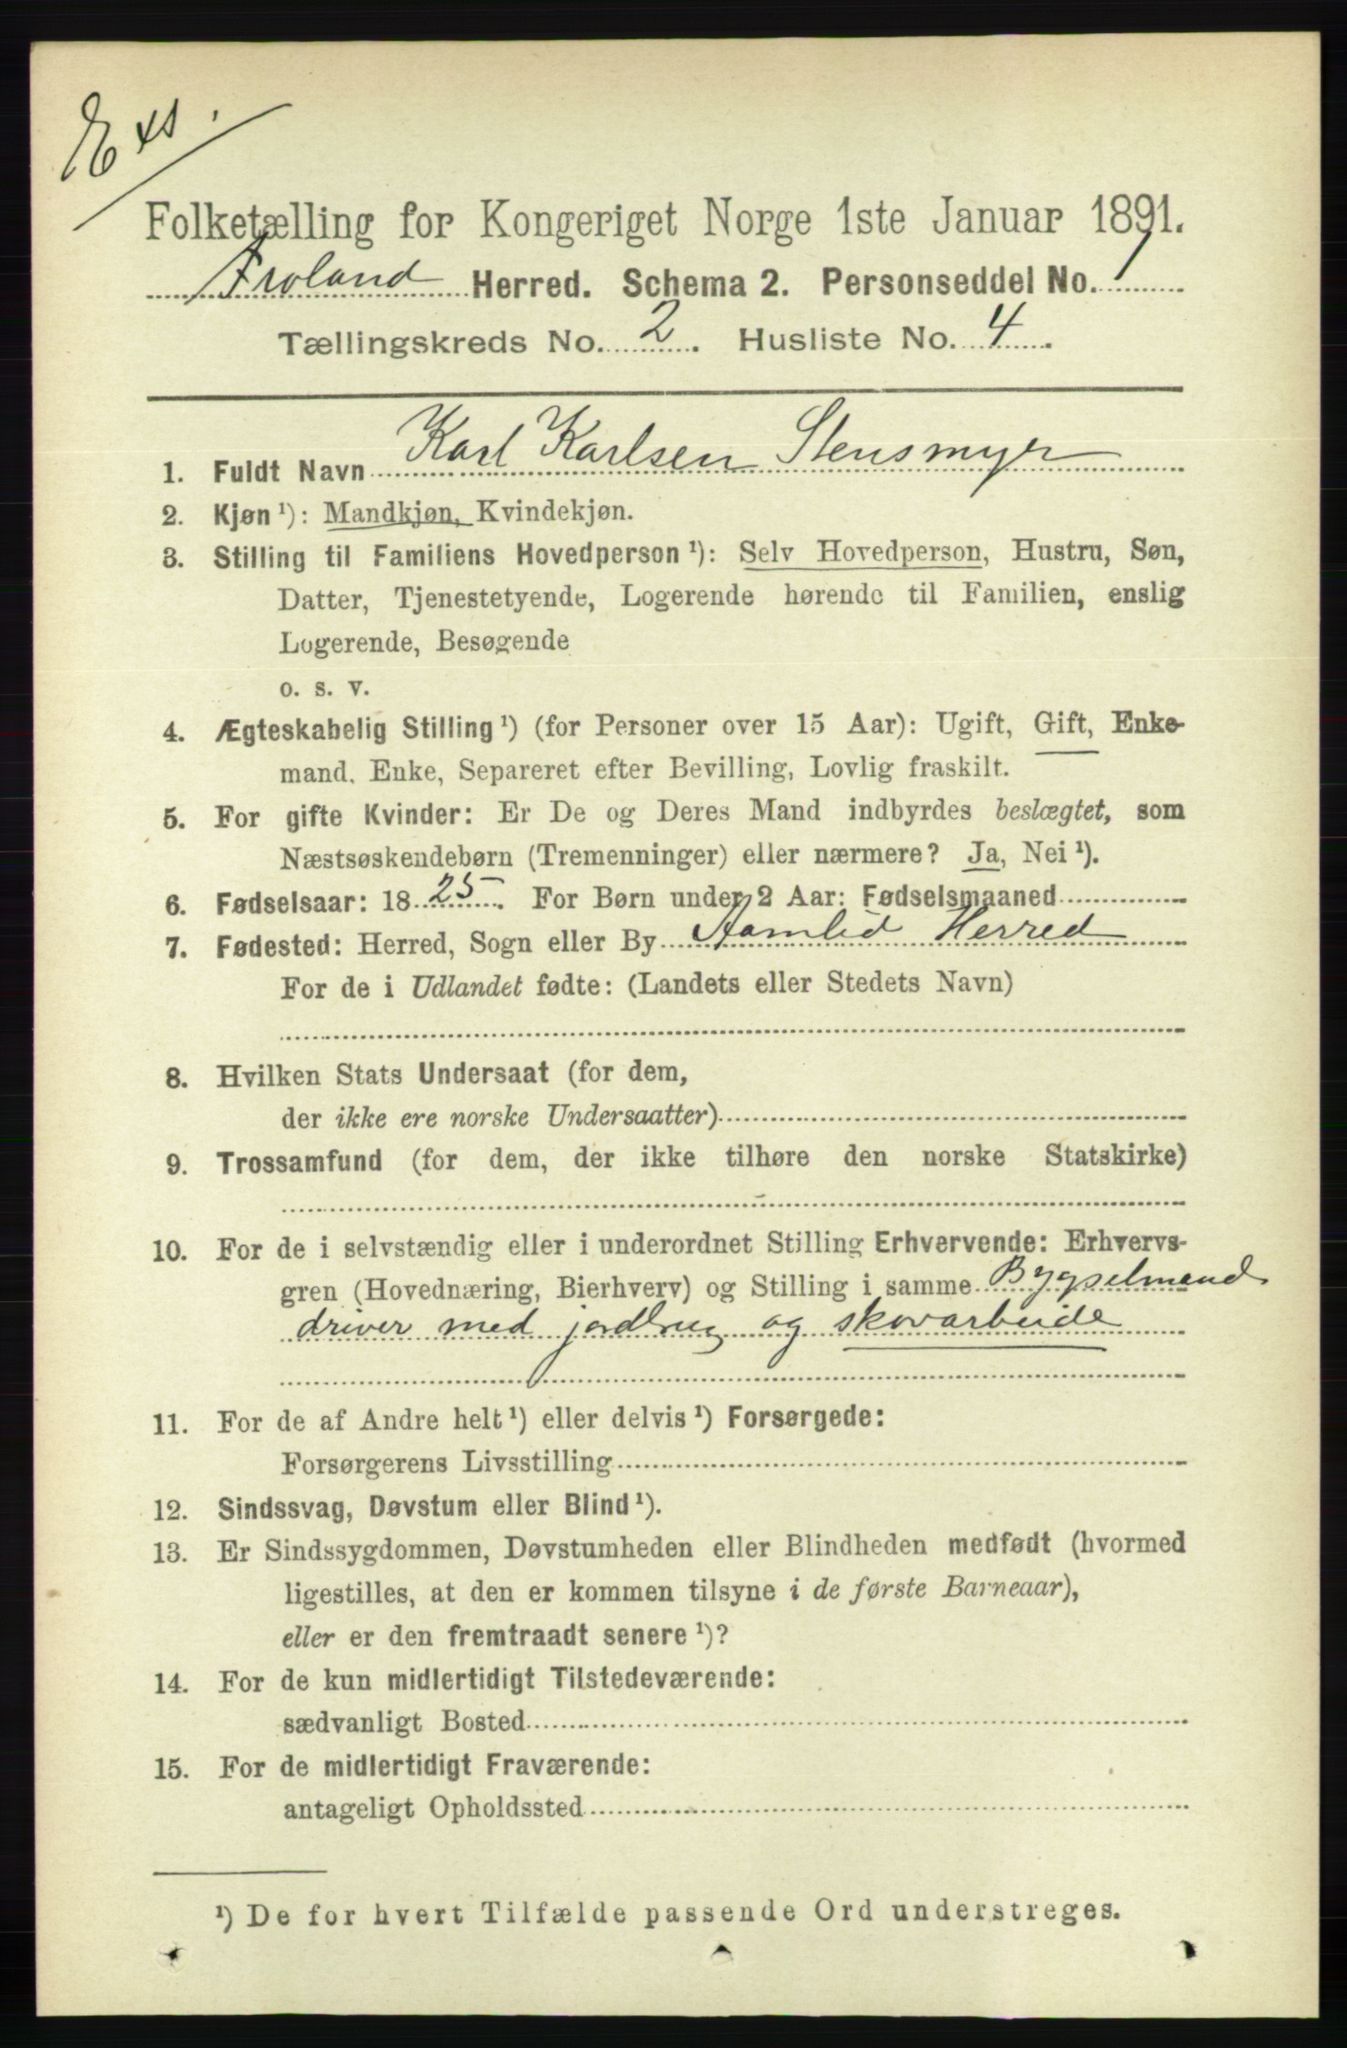 Exs.
Folketælling for Kongeriget Norge 1ste Januar 1891.
Froland Herred. Schema 2. Personseddel No. 1
Tællingskreds No. 2. Husliste No. 4.
1. Fuldt Navn Karl Karlsen Stensmyr
2. Kjøn ¹): Mandkjøn, Kvindekjøn.
3. Stilling til Familiens Hovedperson ¹): Selv Hovedperson, Hustru, Søn,
Datter, Tjenestetyende, Logerende hørende til Familien, enslig
Logerende, Besøgende
o. s. v.
4. Ægteskabelig Stilling ¹) (for Personer over 15 Aar): Ugift, Gift, Enke-
mand, Enke, Separeret efter Bevilling, Lovlig fraskilt.
5. For gifte Kvinder: Er De og Deres Mand indbyrdes beslægtet, som
Næstsøskendebørn (Tremenninger) eller nærmere? Ja, Nei ¹).
6. Fødselsaar: 1825. For Børn under 2 Aar: Fødselsmaaned
7. Fødested: Herred, Sogn eller By Aamlid Herred
For de i Udlandet fødte: (Landets eller Stedets Navn)
8. Hvilken Stats Undersaat (for dem,
der ikke ere norske Undersaatter)
9. Trossamfund (for dem, der ikke tilhøre den norske Statskirke)
10. For de i selvstændig eller i underordnet Stilling Erhvervende: Erhvervs-
gren (Hovednæring, Bierhverv) og Stilling i samme Bygselmand
driver med jordbrug og skovarbeide
11. For de af Andre helt ¹) eller delvis ¹) Forsørgede:
Forsørgerens Livsstilling
12. Sindssvag, Døvstum eller Blind ¹).
13. Er Sindssygdommen, Døvstumheden eller Blindheden medfødt (hvormed
ligestilles, at den er kommen tilsyne i de første Barneaar),
eller er den fremtraadt senere ¹)?
14. For de kun midlertidigt Tilstedeværende:
sædvanligt Bosted
15. For de midlertidigt Fraværende:
antageligt Opholdssted
¹) De for hvert Tilfælde passende Ord understreges.